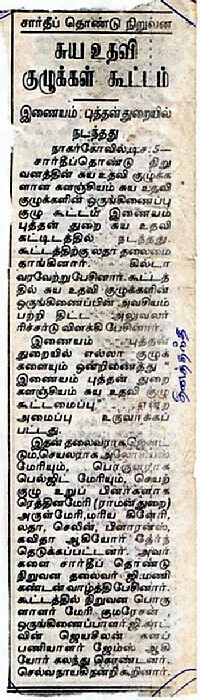 சார்தீப் தொண்டு நிறுவன
சுய உதவி
குழுக்கள் கூட்டம்
இணையம் புத்தன்துறையில்
நடந்தது
நாகர்கோவில்,டிச.5—
சார்தீப்தொண்டு நிறு
வனத்தின் சுய உதவி குழுக்க
ளான களஞ்சியம் சுய உதவி
குழுக்களின் ஒருங்கிணைப்பு
குழு கூட்டம் இணையம்
புத்தன் துறை சுய உதவி
கட்டிடத்தில் நடந்தது.
கூட்டத்திற்கு லதா தலைமை
தாங்கினார். கில்டா
வரவேற்று பேசினார். கூட்டத்
தில் சுய உதவி குழுக்களின்
ஒருங்கிணைப்பின் அவசியம்
பற்றி திட்ட அலுவலர்
ரிச்சர்டு விளக்கி பேசினார்.
இணையம் புத்தன்
துறையில் எல்லா குழுக்
களையும் ஒன்றிணைத்து
இணையம் புத்தன் துறை
களஞ்சியம் சுய உதவி குழு
கூட்டமைப்பு என்ற
அமைப்பு உருவாக்கப்
பட்டது.
இதன் தலைவராக
செயலராக
மேரியும், பொருளாராக
பெல்ஜிட் மேரியும், செயற்
குழு உறுப் பினர்களாக
ரெத்தினமேரி (ராமன் துறை)
அருள்மேரி, மரிய கிளேரி,
லதா, செலின், பிளாரன்ஸ்,
கவிதா ஆகியோர் தேர்ந்
தெடுக்கப்பட்டனர். அவர்
களை சார்தீப் தொண்டு
நிறுவன தலைவர் ஜி.மணி
கண்டன் வாழ்த்தி பேசினார்.
கூட்டத்தில் நிறுவன பொரு
ளாளர் மேரி குமரேசன்,
ஒருங்கிணைப்பாளர்
வின் ஜெயசிலன் களப்
பணியாளர் ஜேம்ஸ் ஆகி
யோர் கலந்து கொண்டனர்.
செல்வநாயகி நன்றி கூறினார்.
தினத்தந்தி